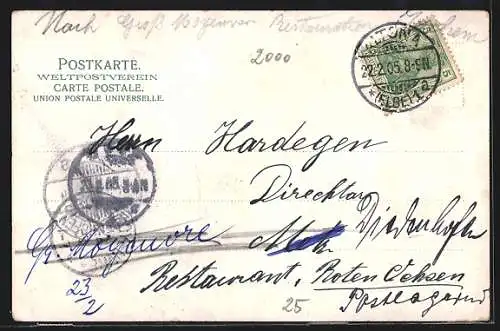 Nach Groß Moyeuvre Restauration
2000
POSTKARTE.
WELTPOSTVEREIN
CARTE POSTALE.
UNION POSTALE UNIVERSELLE.
22.2.05.8-9N
*(ELBE)1a
5
Herrn Hardegen
Direcktor
Diedenhofen
Gr. Moyeuvre
Restaurant, Roten Ochsen
Postlagernd
23/2
25